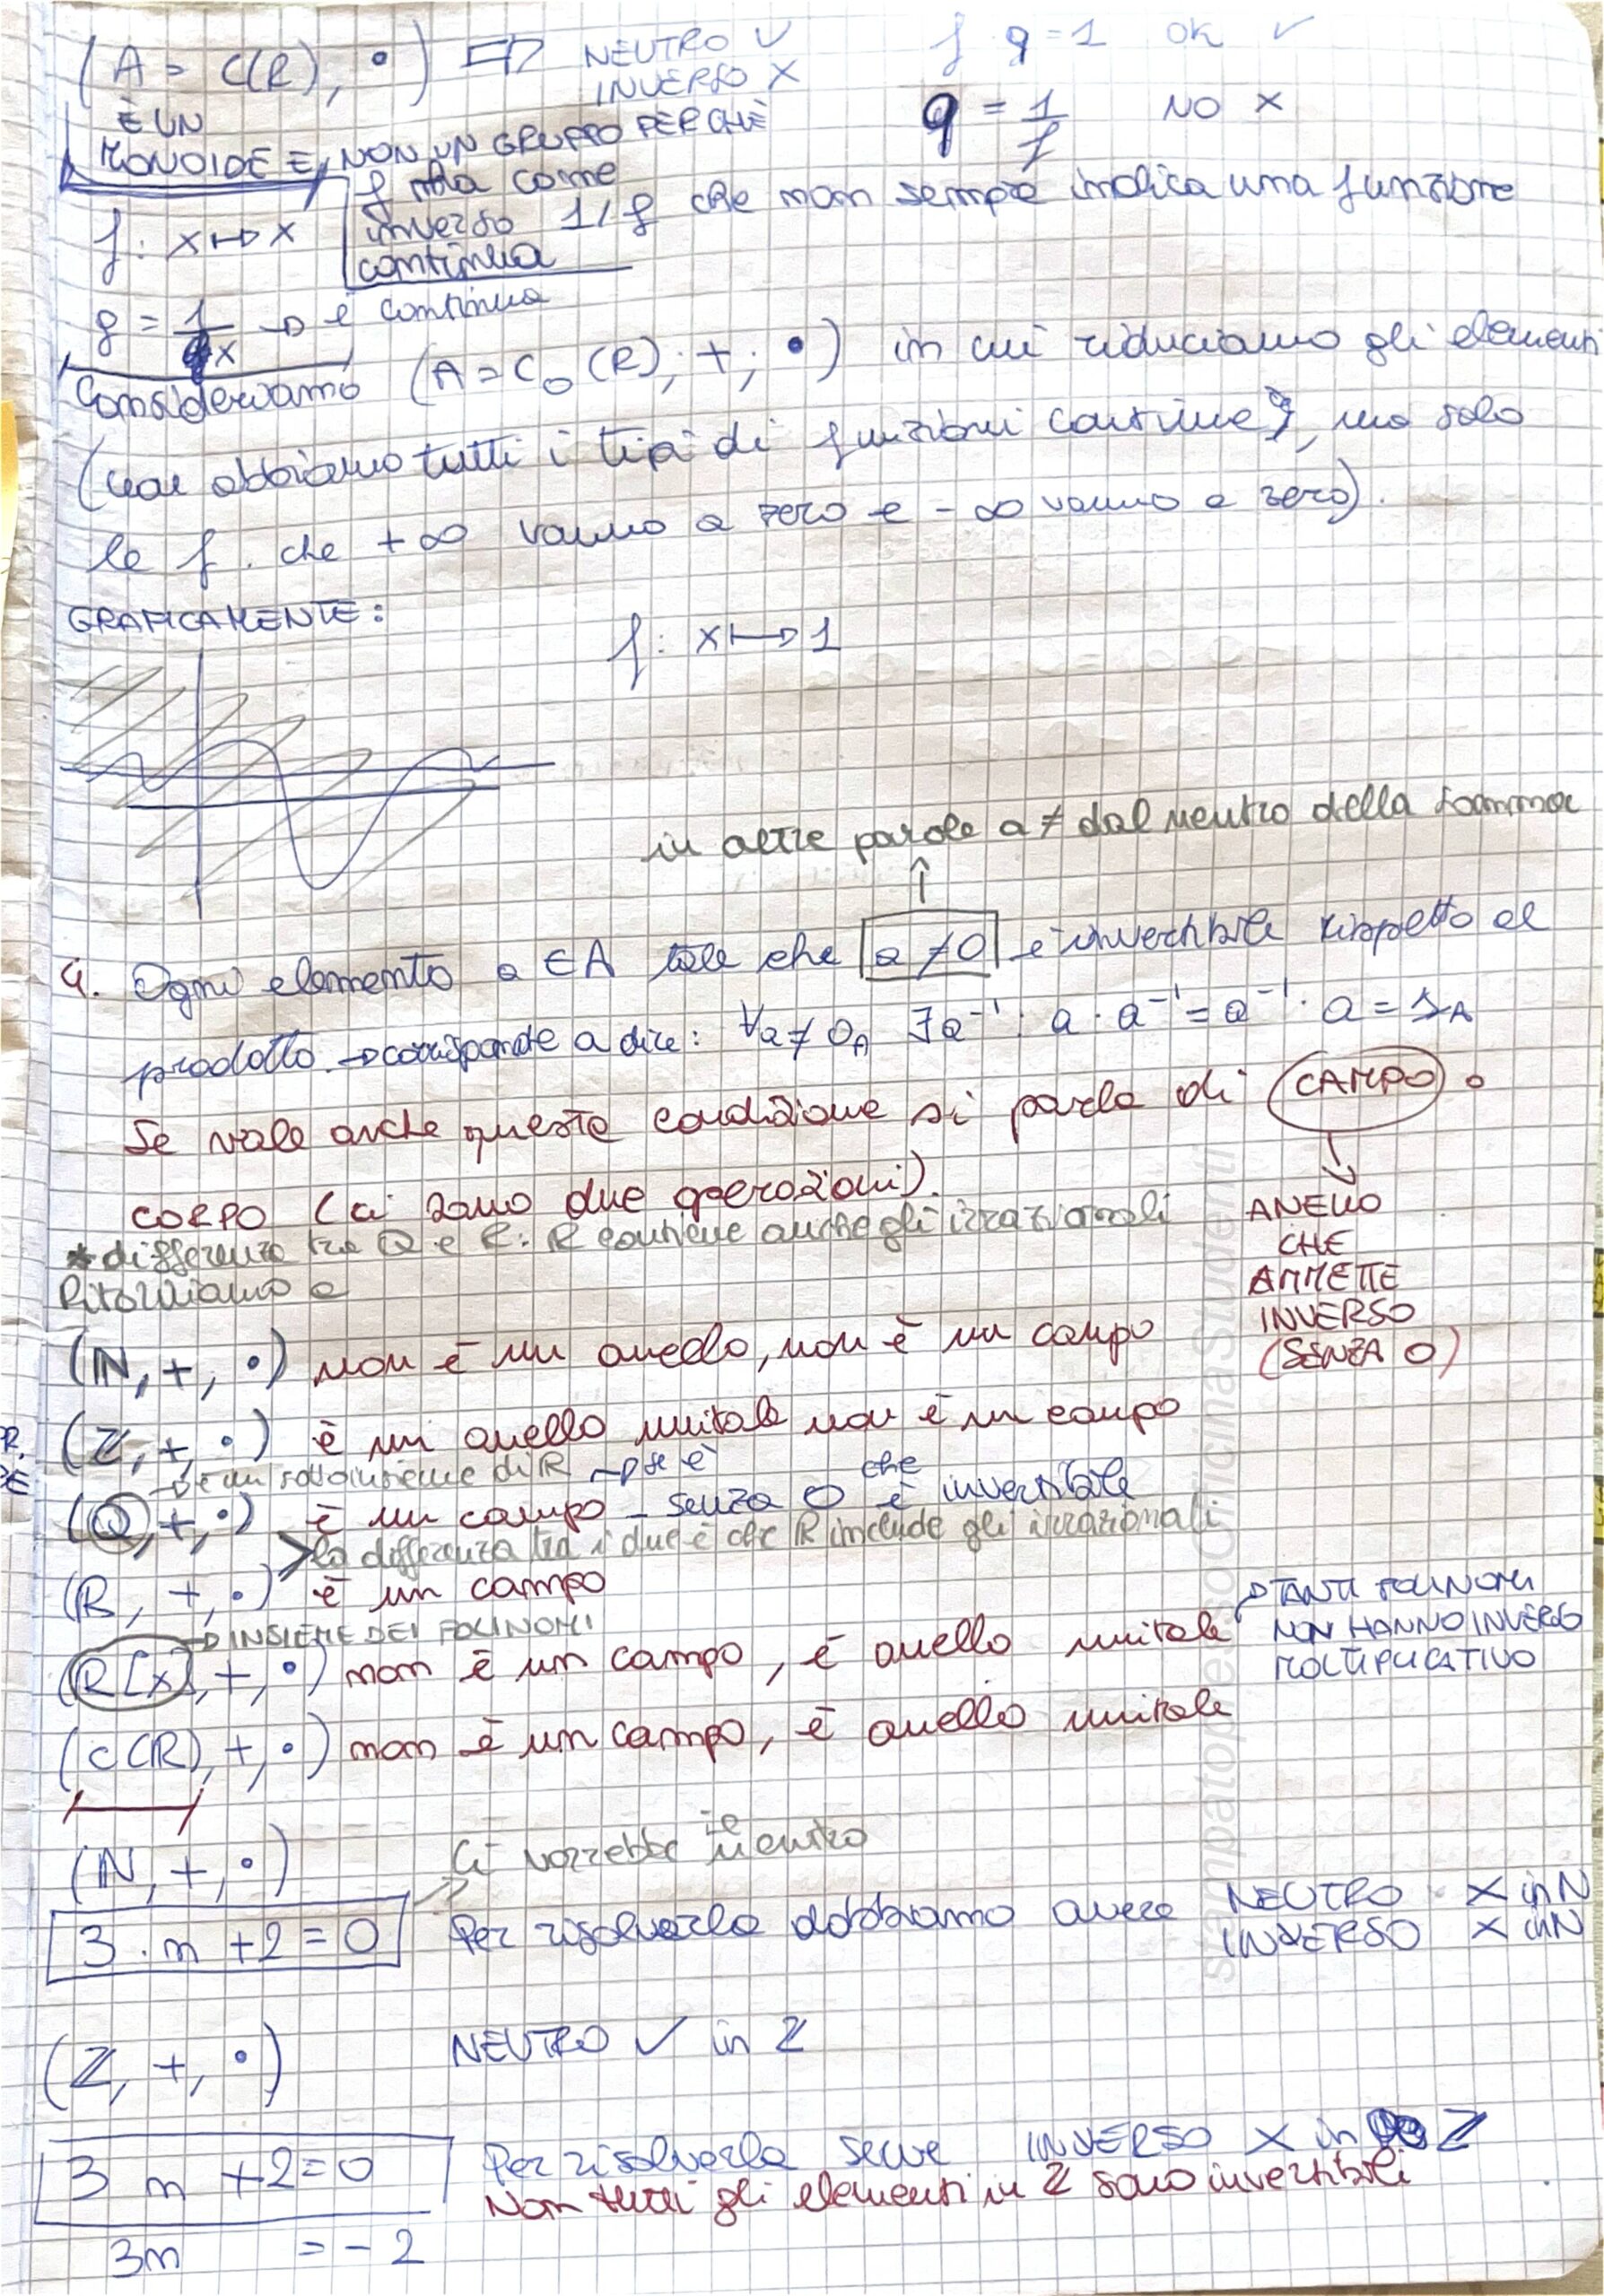 (A = C(R), •) ⇨ NEUTRO ✓ f g = 1 OK ✓
INVERSO X
È UN g = 1/f NO X
MONOIDE E NON UN GRUPPO PERCHÈ
f ha come
inverso 1/f che non sempre indica una funzione
continua
f: x ↦ x
g = 1/x → è continua
Consideriamo (A = C₀(R); +; •) in cui riduciamo gli elementi
(non abbiamo tutti i tipi di funzioni continue, ma solo
le f. che +∞ vanno a zero e -∞ vanno a zero).
GRAFICAMENTE:
f: x ↦ 1
in altre parole a ≠ dal neutro della somma
↑
4. Ogni elemento a ∈ A tale che a ≠ 0 è invertibile rispetto al
prodotto. → corrisponde a dire: ∀a ≠ 0_A ∃a⁻¹: a · a⁻¹ = a⁻¹ · a = 1_A
Se vale anche questa condizione si parla di CAMPO o
corpo (ci sono due operazioni).
↓
ANELLO
CHE
AMMETTE
INVERSO
(SENZA 0)
* differenza tra Q e R: R contiene anche gli irrazionali
Ritorniamo a
(N, +, •) non è un anello, non è un campo
(Z, +, •) è un anello unitale non è un campo
→ è un sottoinsieme di R → se è
(Q, +, •) è un campo - senza 0 che è invertibile
> la differenza tra i due è che R include gli irrazionali
(R, +, •) è un campo
→ INSIEME DEI POLINOMI
(R[x], +, •) non è un campo, è anello unitale
→ TANTI POLINOMI
NON HANNO INVERSO
MOLTIPLICATIVO
(C(R), +, •) non è un campo, è anello unitale
(N, +, •)
Ci vorrebbe il neutro
3 · n + 2 = 0 Per risolverla dobbiamo avere NEUTRO X in N
INVERSO X in N
(Z, +, •) NEUTRO ✓ in Z
3 n + 2 = 0 Per risolverla serve INVERSO X in Z
Non tutti gli elementi in Z sono invertibili
3n = - 2
stampatopressoOfficinaStudenti